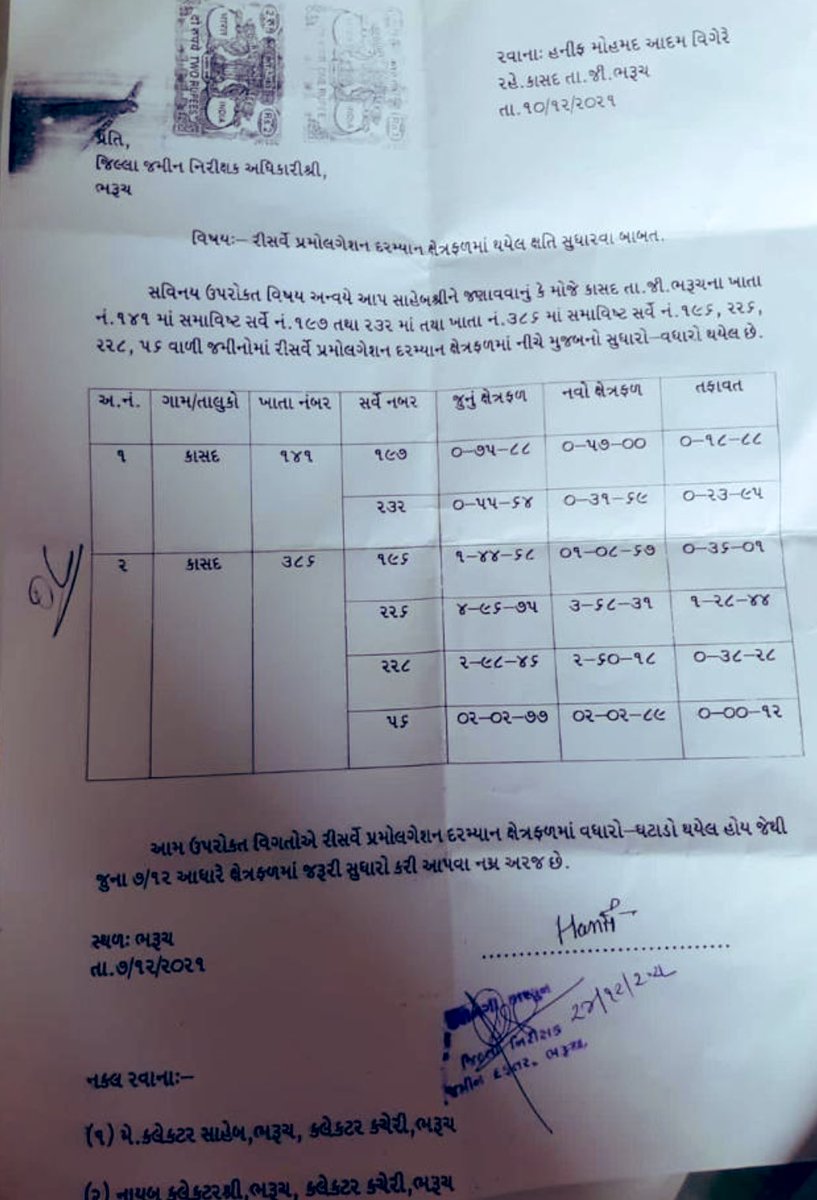 બે રૂપયે TWO RUPEES
भारत
INDIA
રવાનાઃ હનીફ મોહમદ આદમ વિગેરે
રહે.કાસદ તા.જી.ભરૂચ
તા.૧૦/૧૨/૨૦૨૧
પ્રતિ,
જિલ્લા જમીન નિરીક્ષક અધિકારીશ્રી,
ભરૂચ
વિષયઃ– રીસર્વે પ્રમોલગેશન દરમ્યાન ક્ષેત્રફળમાં થયેલ ક્ષતિ સુધારવા બાબત.
સવિનય ઉપરોકત વિષય અન્વયે આપ સાહેબશ્રીને જણાવવાનું કે મોજે કાસદ તા.જી.ભરૂચના ખાતા
નં.૧૪૧ માં સમાવિષ્ટ સર્વે નં.૧૯૭ તથા ૨૩૨ માં તથા ખાતા નં.૩૮૬ માં સમાવિષ્ટ સર્વે નં.૧૯૬, ૨૨૬,
૨૨૮, ૫૬ વાળી જમીનોમાં રીસર્વે પ્રમોલગેશન દરમ્યાન ક્ષેત્રફળમાં નીચે મુજબનો સુધારો–વધારો થયેલ છે.
અ.નં. ગામ/તાલુકો ખાતા નંબર સર્વે નબર જુનું ક્ષેત્રફળ નવો ક્ષેત્રફળ તફાવત
૧ કાસદ ૧૪૧ ૧૯૭ ૦–૭૫–૮૮ ૦–૫૭–૦૦ ૦–૧૮–૮૮
૨૩૨ ૦–૫૫–૬૪ ૦–૩૧–૬૯ ૦–૨૩–૯૫
૨ કાસદ ૩૮૬ ૧૯૬ ૧–૪૪–૬૮ ૦૧–૦૮–૬૭ ૦–૩૬–૦૧
૨૨૬ ૪–૯૬–૭૫ ૩–૬૮–૩૧ ૧–૨૮–૪૪
૨૨૮ ૨–૯૮–૪૬ ૨–૬૦–૧૮ ૦–૩૮–૨૮
૫૬ ૦૨–૦૨–૭૭ ૦૨–૦૨–૮૯ ૦–૦૦–૧૨
આમ ઉપરોકત વિગતોએ રીસર્વે પ્રમોલગેશન દરમ્યાન ક્ષેત્રફળમાં વધારો–ઘટાડો થયેલ હોય જેથી
જુના ૭/૧૨ આધારે ક્ષેત્રફળમાં જરૂરી સુધારો કરી આપવા નમ્ર અરજ છે.
Hanif
સ્થળઃ ભરૂચ
તા.૭/૧૨/૨૦૨૧
જિલ્લા નિરીક્ષક
જમીન દફતર, ભરૂચ
નકલ રવાનાઃ–
(૧) મે.કલેકટર સાહેબ,ભરૂચ, કલેકટર કચેરી,ભરૂચ
(૨) નાયબ કલેકટરશ્રી,ભરૂચ, કલેકટર કચેરી,ભરૂચ